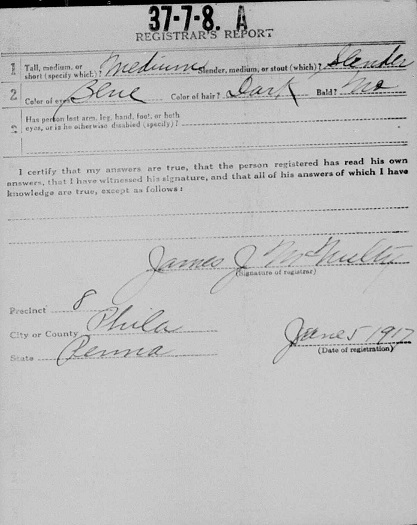 37-7-8. A
REGISTRAR'S REPORT
1 Tall, medium, or short (specify which)? Medium Slender, medium, or stout (which)? Slender
2 Color of eyes Blue Color of hair? Dark Bald? No
3 Has person lost arm, leg, hand, foot, or both
eyes, or is he otherwise disabled (specify)?
I certify that my answers are true, that the person registered has read his own
answers, that I have witnessed his signature, and that all of his answers of which I have
knowledge are true, except as follows:
James J McNulty
(Signature of registrar)
Precinct 8
City or County Phila
State Penna
June 5 1917
(Date of registration)